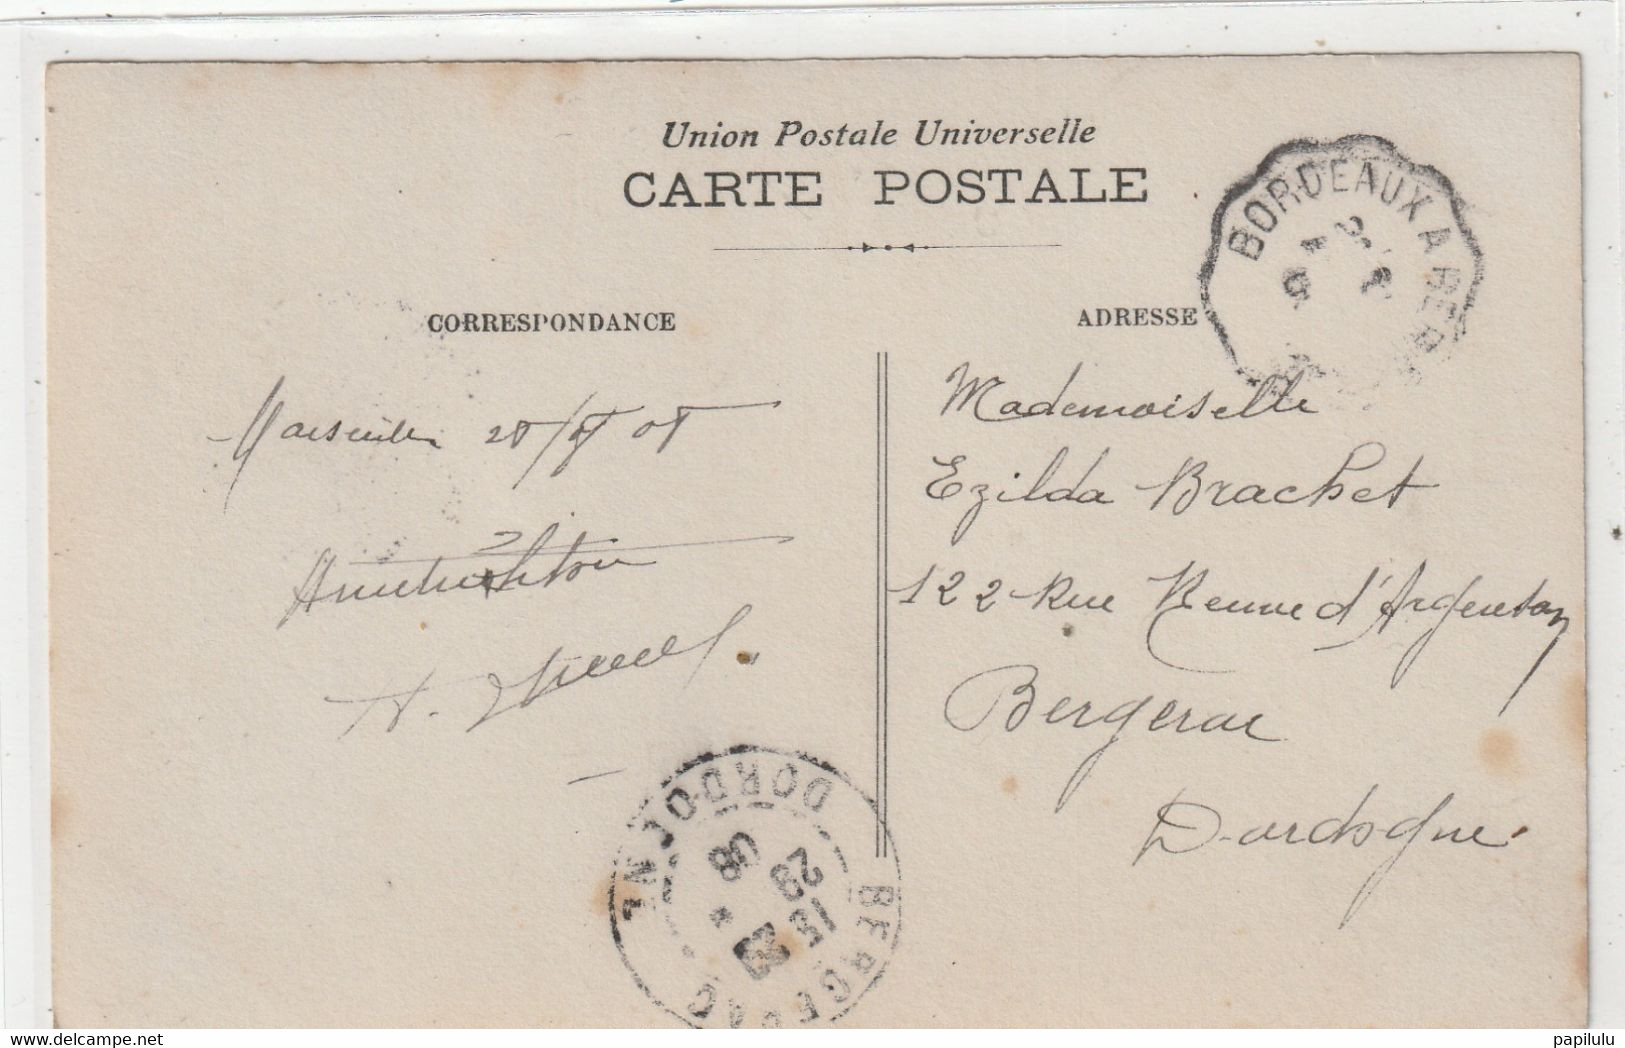 Union Postale Universelle
CARTE POSTALE
BORDEAUX A
CORRESPONDANCE
ADRESSE
Marseille
Mademoiselle
Ezilda Brachet
122 Rue Neuve d'Argenson
Bergerac
Dordogne
BERGERAC
DORDOGNE
15
29
08
www.delcampe.net
papilulu